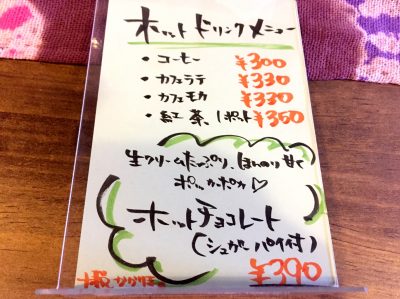 ホットドリンクメニュー
・コーヒー ¥300
・カフェラテ ¥330
・カフェモカ ¥330
・紅茶 1ポット ¥350
生クリームたっぷり、ほんのり甘くて
ポッカポカ♡
ホットチョコレート
(シュガーパイ付)
¥390